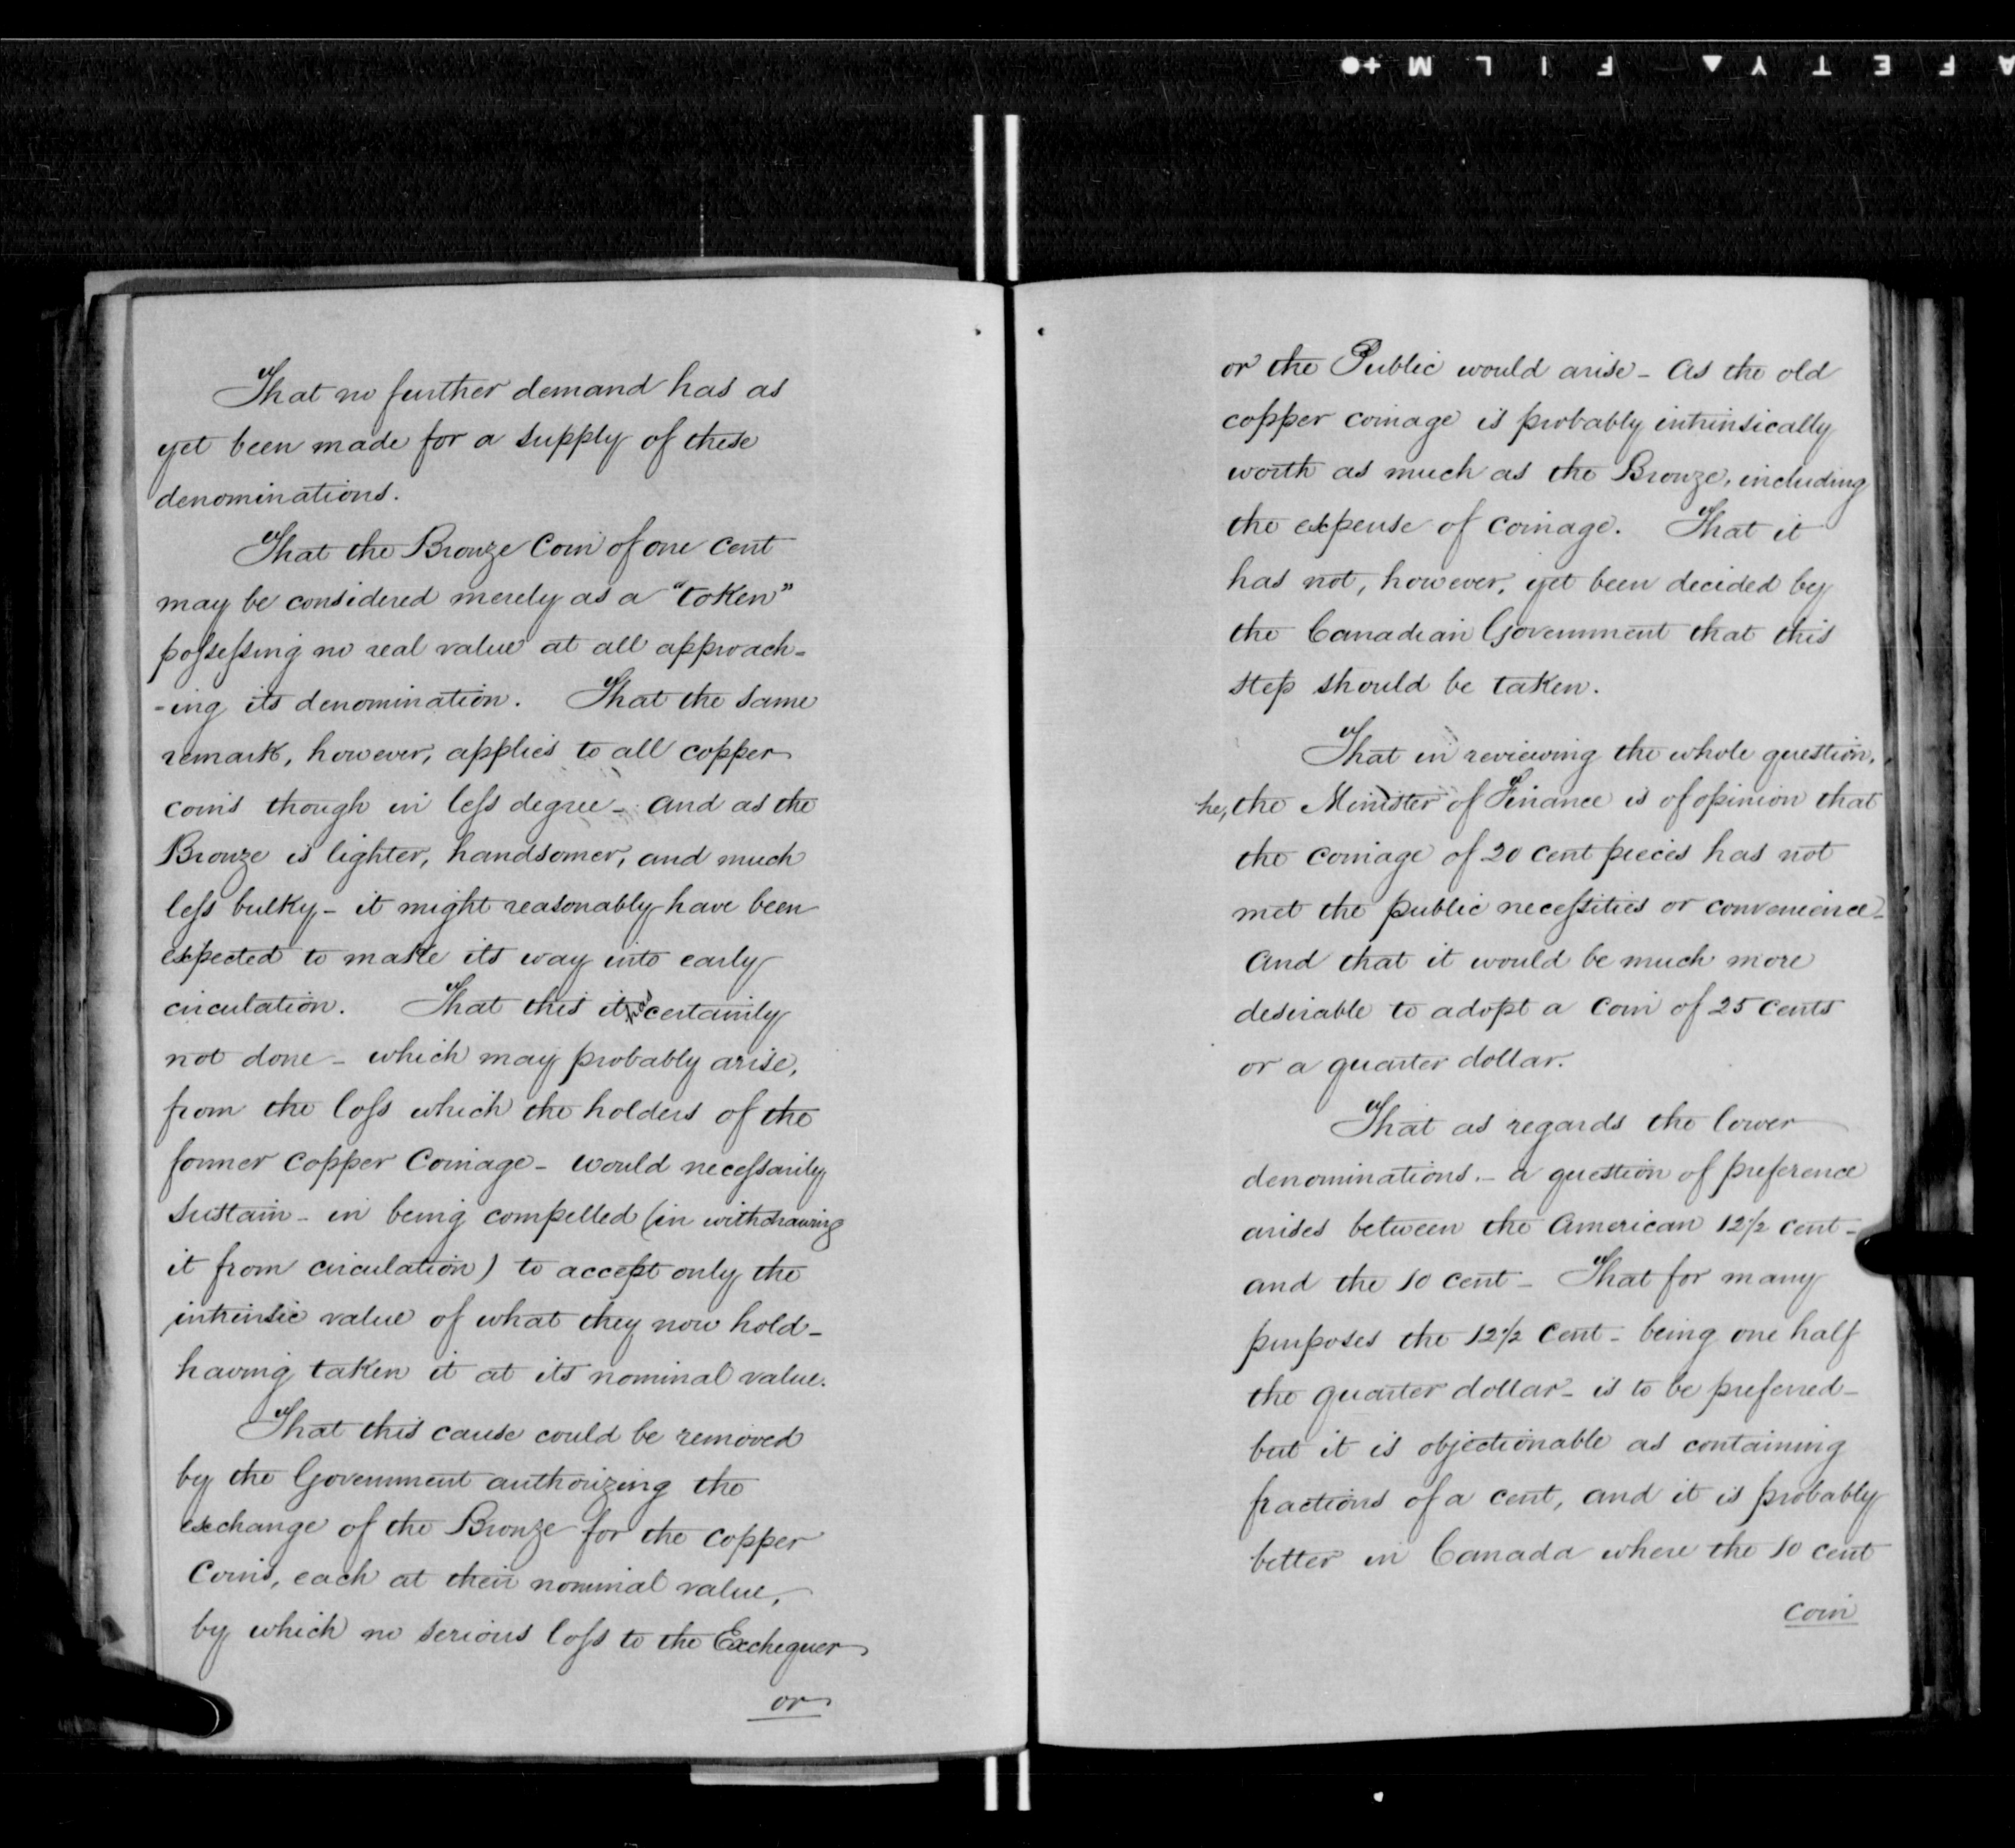 SAFETY FILM
That no further demand has as
yet been made for a supply of these
denominations.
That the Bronze Coin of one cent
may be considered merely as a "token"
possessing no real value at all approach-
-ing its denomination. That the same
remark, however, applies to all copper
coins though in less degree - and as the
Bronze is lighter, handsomer, and much
less bulky - it might reasonably have been
expected to make its way into early
circulation. That this it has certainly
not done - which may probably arise,
from the loss which the holders of the
former Copper Coinage - would necessarily
sustain - in being compelled (in withdrawing
it from circulation) to accept only the
intrinsic value of what they now hold -
having taken it at its nominal value.
That this cause could be removed
by the Government authorizing the
exchange of the Bronze for the Copper
Coins, each at their nominal value,
by which no serious loss to the Exchequer
or
or the Public would arise - As the old
copper coinage is probably intrinsically
worth as much as the Bronze, including
the expense of coinage. That it
has not, however, yet been decided by
the Canadian Government that this
step should be taken.
That in reviewing the whole question,
he, the Minister of Finance is of opinion that
the coinage of 20 cent pieces has not
met the public necessities or convenience -
And that it would be much more
desirable to adopt a Coin of 25 cents
or a quarter dollar.
That as regards the lower
denominations. - a question of preference
arises between the American 12½ cent -
and the 10 cent - That for many
purposes the 12½ Cent - being one half
the quarter dollar - is to be preferred -
but it is objectionable as containing
fractions of a cent, and it is probably
better in Canada where the 10 cent
coin